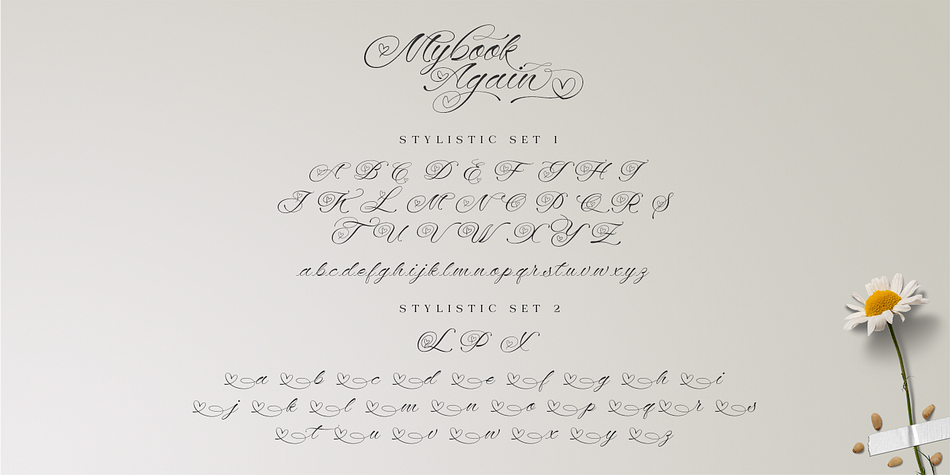 Mybook
Again
STYLISTIC SET 1
A B C D E F G H I
J K L M N O P Q R S
T U V W X Y Z
a b c d e f g h i j k l m n o p q r s t u v w x y z
STYLISTIC SET 2
L P X
a b c d e f g h i
j k l m n o p q r s
t u v w x y z